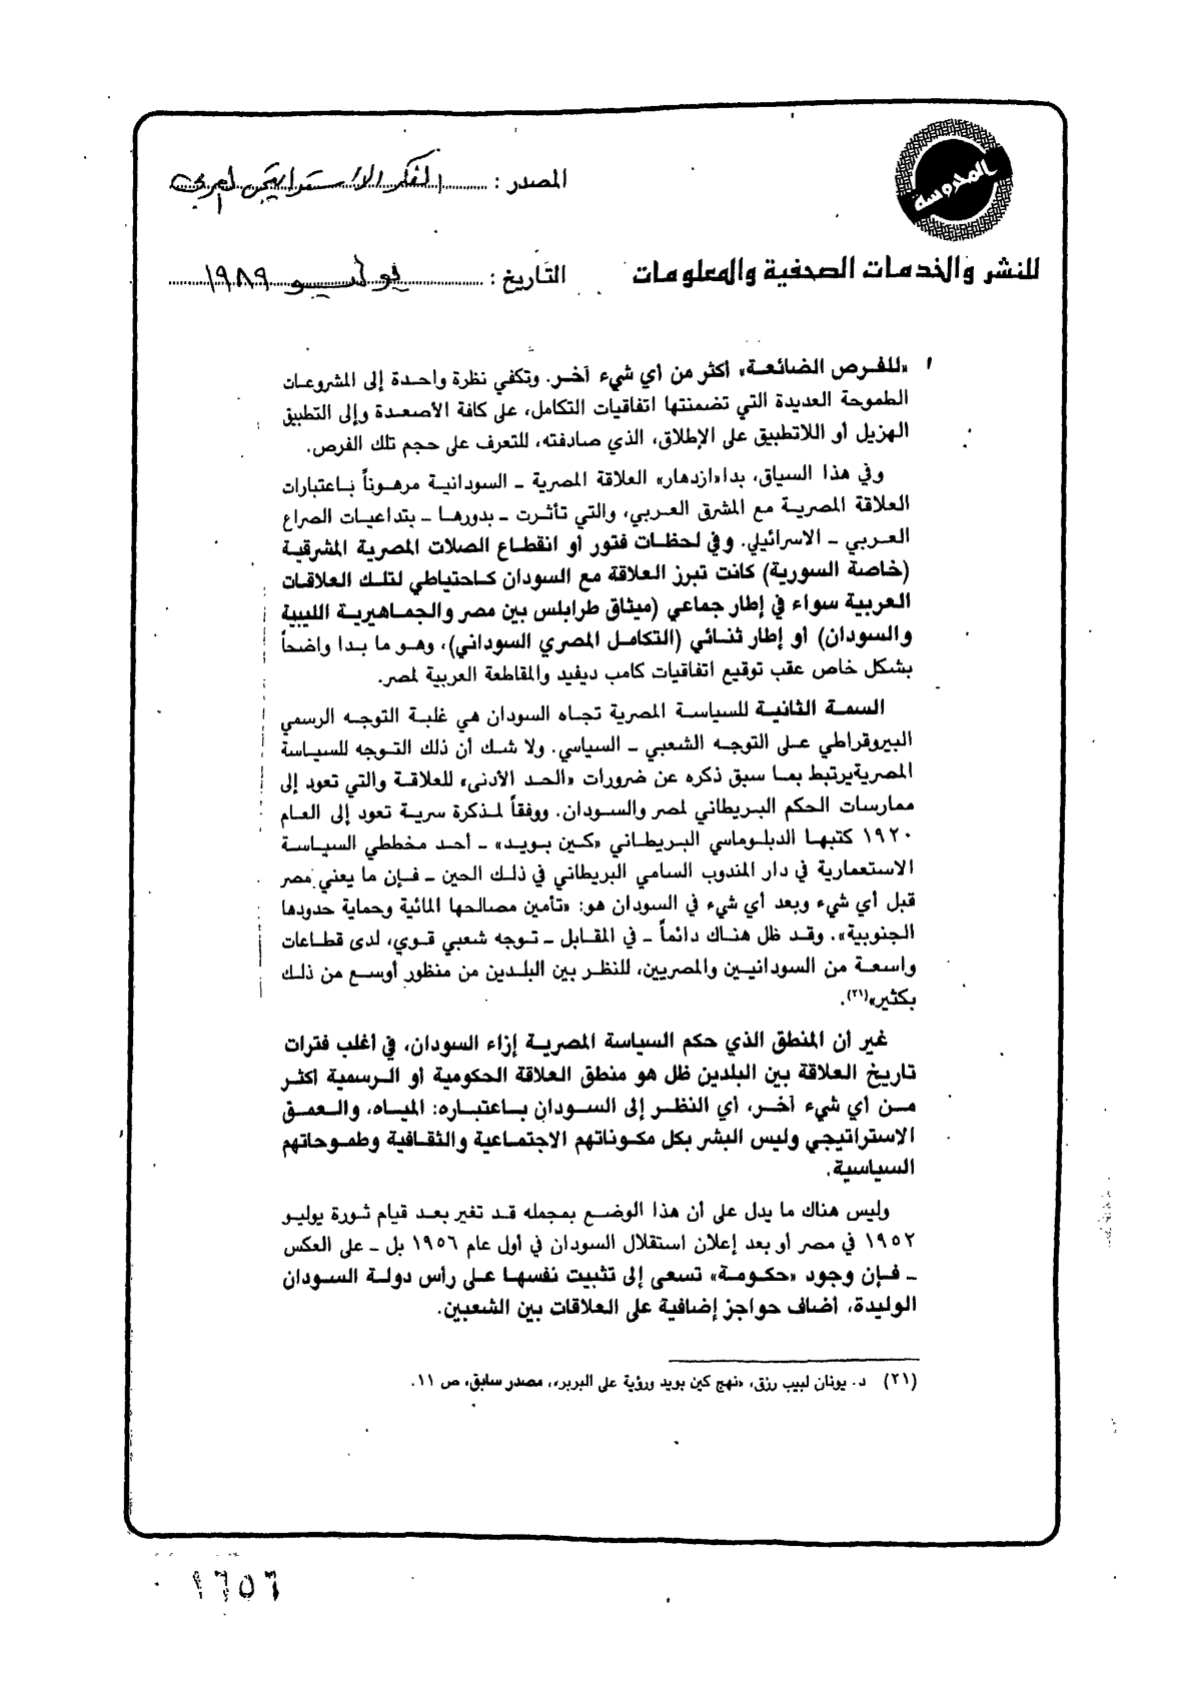 المحروسة
المصدر : الفكر الاستراتيجي العربي
للنشر والخدمات الصحفية والمعلومات
التاريخ : يوليو ١٩٨٩
«للفرص الضائعة» أكثر من أي شيء آخر. وتكفي نظرة واحدة إلى المشروعات
الطموحة العديدة التي تضمنتها اتفاقيات التكامل، على كافة الأصعدة وإلى التطبيق
الهزيل أو اللاتطبيق على الإطلاق، الذي صادفته، للتعرف على حجم تلك الفرص.
وفي هذا السياق، بدا«ازدهار» العلاقة المصرية ـ السودانية مرهوناً باعتبارات
العلاقة المصرية مع المشرق العربي، والتي تأثرت ـ بدورها ـ بتداعيات الصراع
العربي ـ الاسرائيلي. وفي لحظات فتور أو انقطاع الصلات المصرية المشرقية
(خاصة السورية) كانت تبرز العلاقة مع السودان كاحتياطي لتلك العلاقات
العربية سواء في إطار جماعي (ميثاق طرابلس بين مصر والجماهيرية الليبية
والسودان) أو إطار ثنائي (التكامل المصري السوداني)، وهو ما بدا واضحاً
بشكل خاص عقب توقيع اتفاقيات كامب ديفيد والمقاطعة العربية لمصر.
السمة الثانية للسياسة المصرية تجاه السودان هي غلبة التوجه الرسمي
البيروقراطي على التوجه الشعبي ـ السياسي. ولا شك أن ذلك التوجه للسياسة
المصريةيرتبط بما سبق ذكره عن ضرورات «الحد الأدنى» للعلاقة والتي تعود إلى
ممارسات الحكم البريطاني لمصر والسودان. ووفقاً لمذكرة سرية تعود إلى العام
١٩٢٠ كتبها الدبلوماسي البريطاني «كين بويد» ـ أحد مخططي السياسة
الاستعمارية في دار المندوب السامي البريطاني في ذلك الحين ـ فإن ما يعني مصر
قبل أي شيء وبعد أي شيء في السودان هو: «تأمين مصالحها المائية وحماية حدودها
الجنوبية». وقد ظل هناك دائماً ـ في المقابل ـ توجه شعبي قوي، لدى قطاعات
واسعة من السودانيين والمصريين، للنظر بين البلدين من منظور أوسع من ذلك
بكثير»(٢١).
غير أن المنطق الذي حكم السياسة المصرية إزاء السودان، في أغلب فترات
تاريخ العلاقة بين البلدين ظل هو منطق العلاقة الحكومية أو الرسمية أكثر
من أي شيء آخر، أي النظر إلى السودان باعتباره: المياه، والعمق
الاستراتيجي وليس البشر بكل مكوناتهم الاجتماعية والثقافية وطموحاتهم
السياسية.
وليس هناك ما يدل على أن هذا الوضع بمجمله قد تغير بعد قيام ثورة يوليو
١٩٥٢ في مصر أو بعد إعلان استقلال السودان في أول عام ١٩٥٦ بل ـ على العكس
ـ فإن وجود «حكومة» تسعى إلى تثبيت نفسها على رأس دولة السودان
الوليدة، أضاف حواجز إضافية على العلاقات بين الشعبين.
(٢١) د. يونان لبيب رزق، «نهج كين بويد ورؤية على البربر»، مصدر سابق، ص ١١.